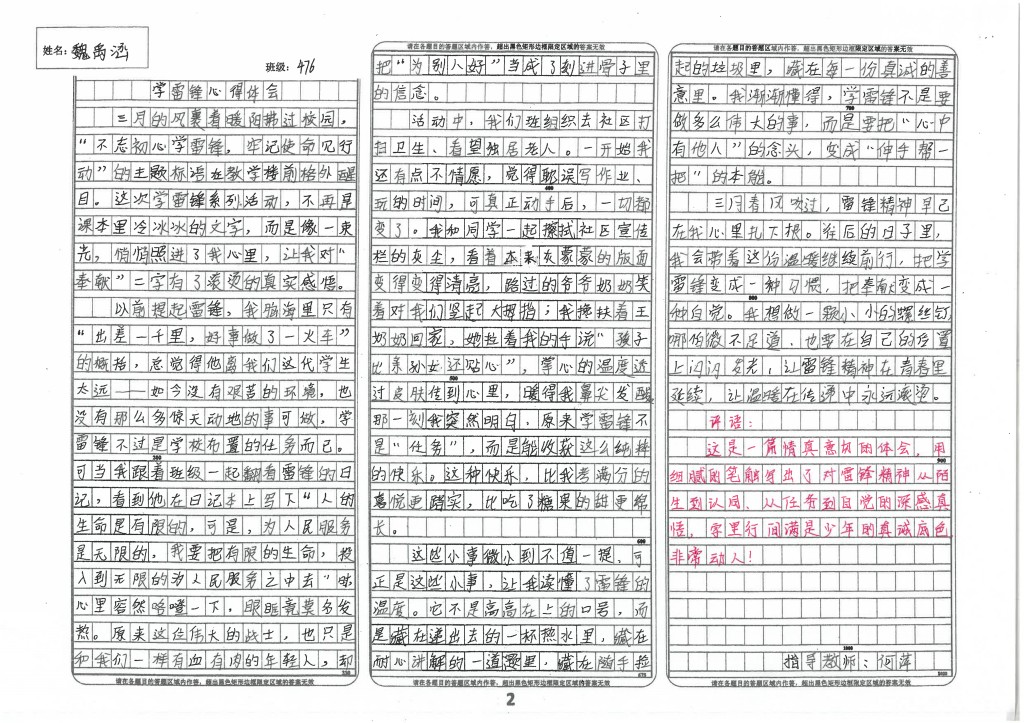 姓名：魏禹涵
班级：476
学雷锋心得体会
三月的风裹着暖阳拂过校园，
“不忘初心学雷锋，牢记使命见行
动”的主题标语在教学楼前格外醒
目。这次学雷锋系列活动，不再是
课本里冷冰冰的文字，而是像一束
光，悄悄照进了我心里，让我对“
奉献”二字有了滚烫的真实感悟。
以前提起雷锋，我脑海里只有
“出差一千里，好事做了一火车”
的概括，总觉得他离我们这代学生
太远——如今没有艰苦的环境，也
没有那么多惊天动地的事可做，学
雷锋不过是学校布置的任务而已。
可当我跟着班级一起翻看雷锋的日
记，看到他在日记本上写下“人的
生命是有限的，可是，为人民服务
是无限的，我要把有限的生命，投
入到无限的为人民服务之中去”时
心里容然咯噔一下，眼眶竟莫名发
热。原来这位伟大的战士，也只是
和我们一样有血有肉的年轻人，却
请在各题目的答题区域内作答，超出黑色矩形边框限定区域的答案无效
请在各题目的答题区域内作答，超出黑色矩形边框限定区域的答案无效
把“为别人好”当成了刻进骨子里
的信念。
活动中，我们班组织去社区打
扫卫生、看望独居老人。一开始我
还有点不情愿，觉得耽误写作业、
玩的时间，可真正动手后，一切都
变了。我和同学一起擦拭社区宣传
栏的灰尘，看着本来灰蒙蒙的版面
变得变得清亮，路过的爷爷奶奶笑
着对我们竖起大拇指；我搀扶着王
奶奶回家，她拉着我的手说“孩子
比亲孙女还贴心”，掌心的温度透
过皮肤传到心里，暖得我鼻尖发酸
那一刻我突然明白，原来学雷锋不
是“任务”，而是能收获这么纯粹
的快乐。这种快乐，比我考满分的
喜悦更踏实，比吃了糖果的甜更绵
长。
这些小事微小到不值一提，可
正是这些小事，让我读懂了雷锋的
温度。它不是高高在上的口号，而
是藏在递出去的一杯热水里，藏在
耐心讲解的一道题里，藏在随手捡
请在各题目的答题区域内作答，超出黑色矩形边框限定区域的答案无效
请在各题目的答题区域内作答，超出黑色矩形边框限定区域的答案无效
起的垃圾里，藏在每一份真诚的善
意里。我渐渐懂得，学雷锋不是要
做多么伟大的事，而是要把“心中
有他人”的念头，变成“伸手帮一
把”的本能。
三月春风吹过，雷锋精神早已
在我心里扎下根。往后的日子里，
我会带着这份温暖继续前行，把学
雷锋变成一种习惯，把奉献变成一
种自觉。我想做一颗小小的螺丝钉
哪怕微不足道，也要在自己的位置
上闪闪发光，让雷锋精神在青春里
延续，让温暖在传递中永远滚烫。
评语：
这是一篇情真意切的体会，用
细腻的笔触写出了对雷锋精神从陌
生到认同、从任务到自觉的深感真
悟，字里行间满是少年的真诚底色
非常动人！
指导教师：何萍
请在各题目的答题区域内作答，超出黑色矩形边框限定区域的答案无效
2